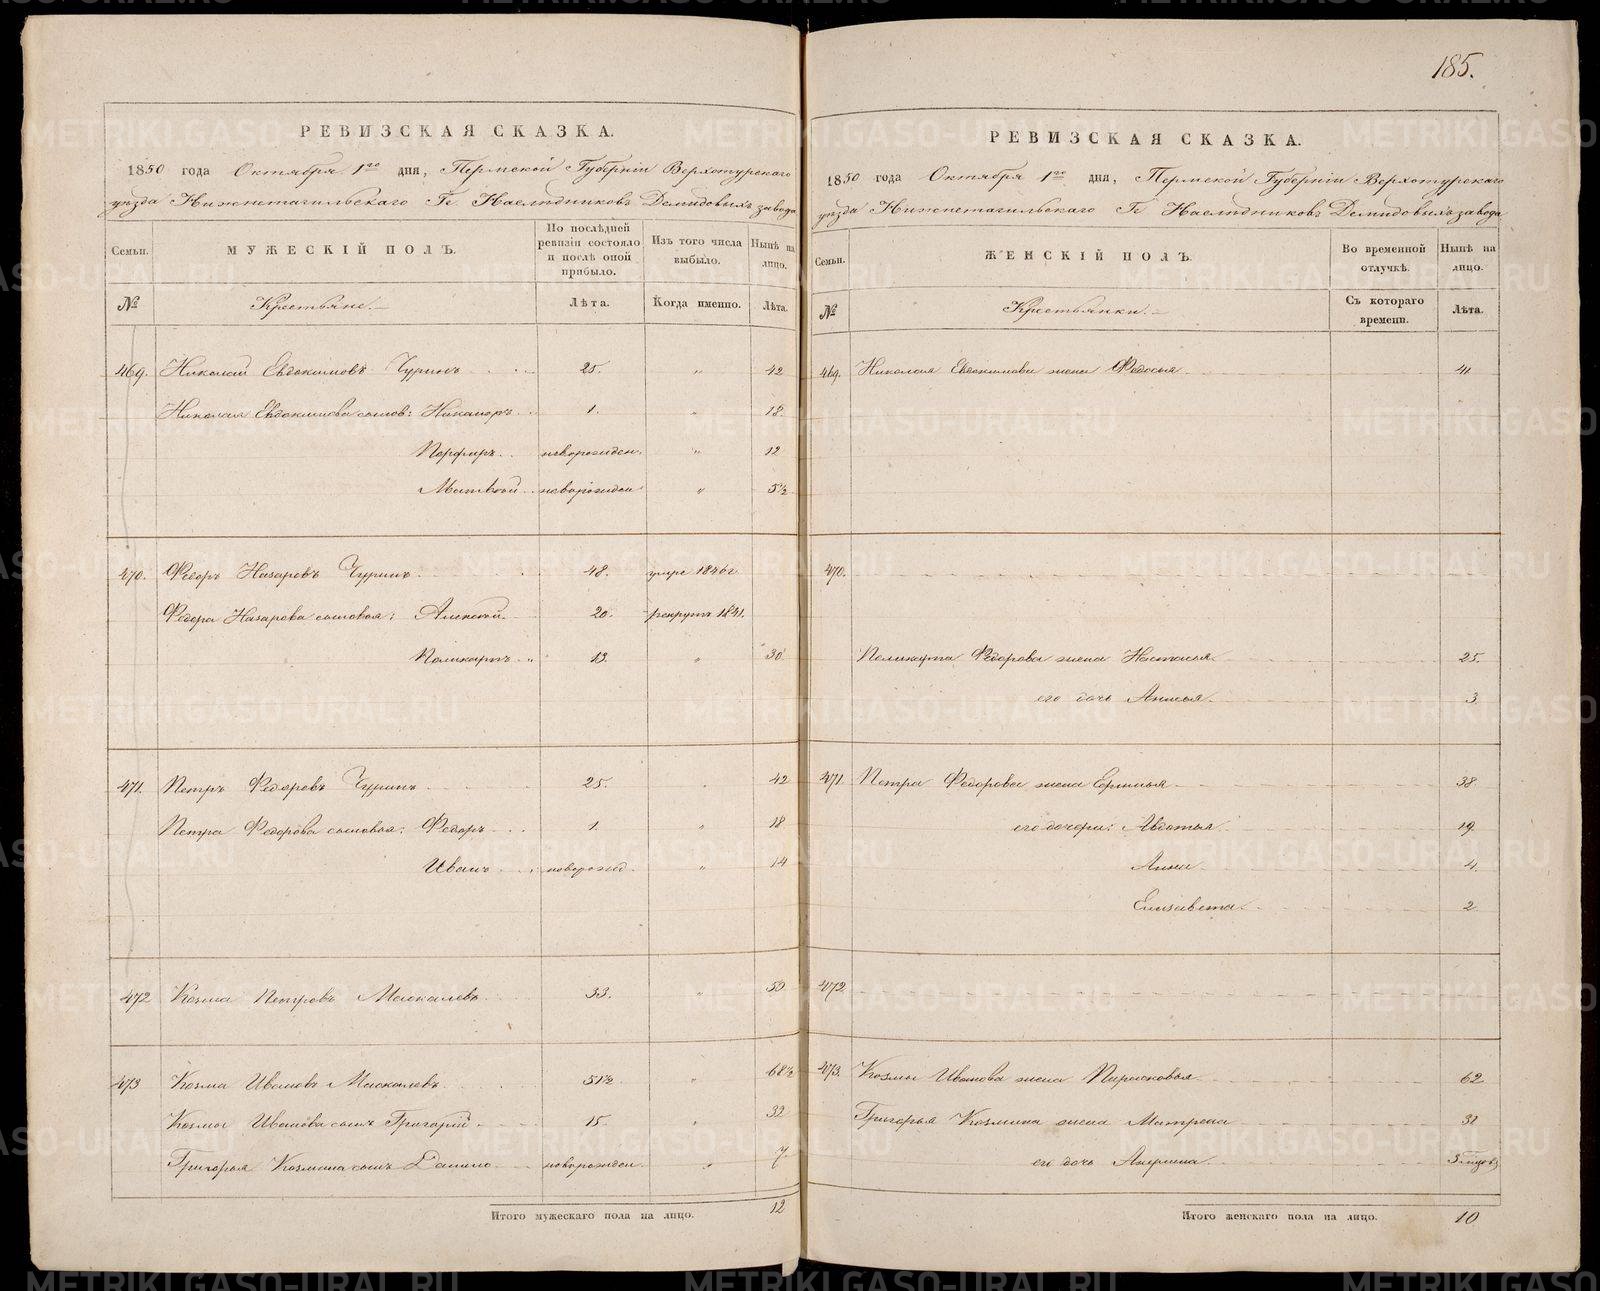 185.
РЕВИЗСКАЯ СКАЗКА.
1850 года Октября 1го дня, Пермской Губерніи Верхотурскаго
уѣзда Нижнетагильскаго Гг. Наслѣдниковъ Демидовыхъ завода
Семьи. МУЖЕСКІЙ ПОЛЪ. По послѣдней ревизіи состояло и послѣ оной прибыло. Изъ того числа выбыло. Нынѣ на лицо.
№ Крестьяне. Лѣта. Когда именно. Лѣта.
469. Николай Евдокимовъ Чуринъ 25. " 42
Николая Евдокимова сынов: Никаноръ 1. " 18.
Порфиръ новорожден. " 12
Матвей новорожден " 5½
470. Федоръ Назаровъ Чуринъ 48. умре 1846г
Федора Назарова сыновья: Алексей 20. рекрутъ 1841.
Поликарпъ 13. " 30
471. Петръ Федоровъ Чуринъ 25. " 42
Петра Федорова сыновья: Федоръ 1. " 18
Иванъ новорожд. " 14
472 Козма Петровъ Москалевъ 33. " 50
473 Козма Ивановъ Москалевъ 51½ " 68½
Козмы Иванова сынъ Григорій 15. " 32
Григорья Козмина сынъ Данило новорожден. " 7
Итого мужескаго пола на лицо. 12
РЕВИЗСКАЯ СКАЗКА.
1850 года Октября 1го дня, Пермской Губерніи Верхотурскаго
уѣзда Нижнетагильскаго Гг Наслѣдниковъ Демидовыхъ завода
Семьи. ЖЕНСКІЙ ПОЛЪ. Во временной отлучкѣ. Нынѣ на лицо.
№ Крестьянки. Съ котораго времени. Лѣта.
469. Николая Евдокимова жена Федосья 41
470.
Поликарпа Федорова жена Настасья 25.
его дочь Анисья 3
471. Петра Федорова жена 38
его дочери: Авдотья 19.
Анна 4.
Елизавета 2
472.
473. Козмы Иванова жена Парасковья 62
Григорья Козмина жена Матрена 31
его дочь 3
Итого женскаго пола на лицо. 10
METRIKI.GASO-URAL.RU